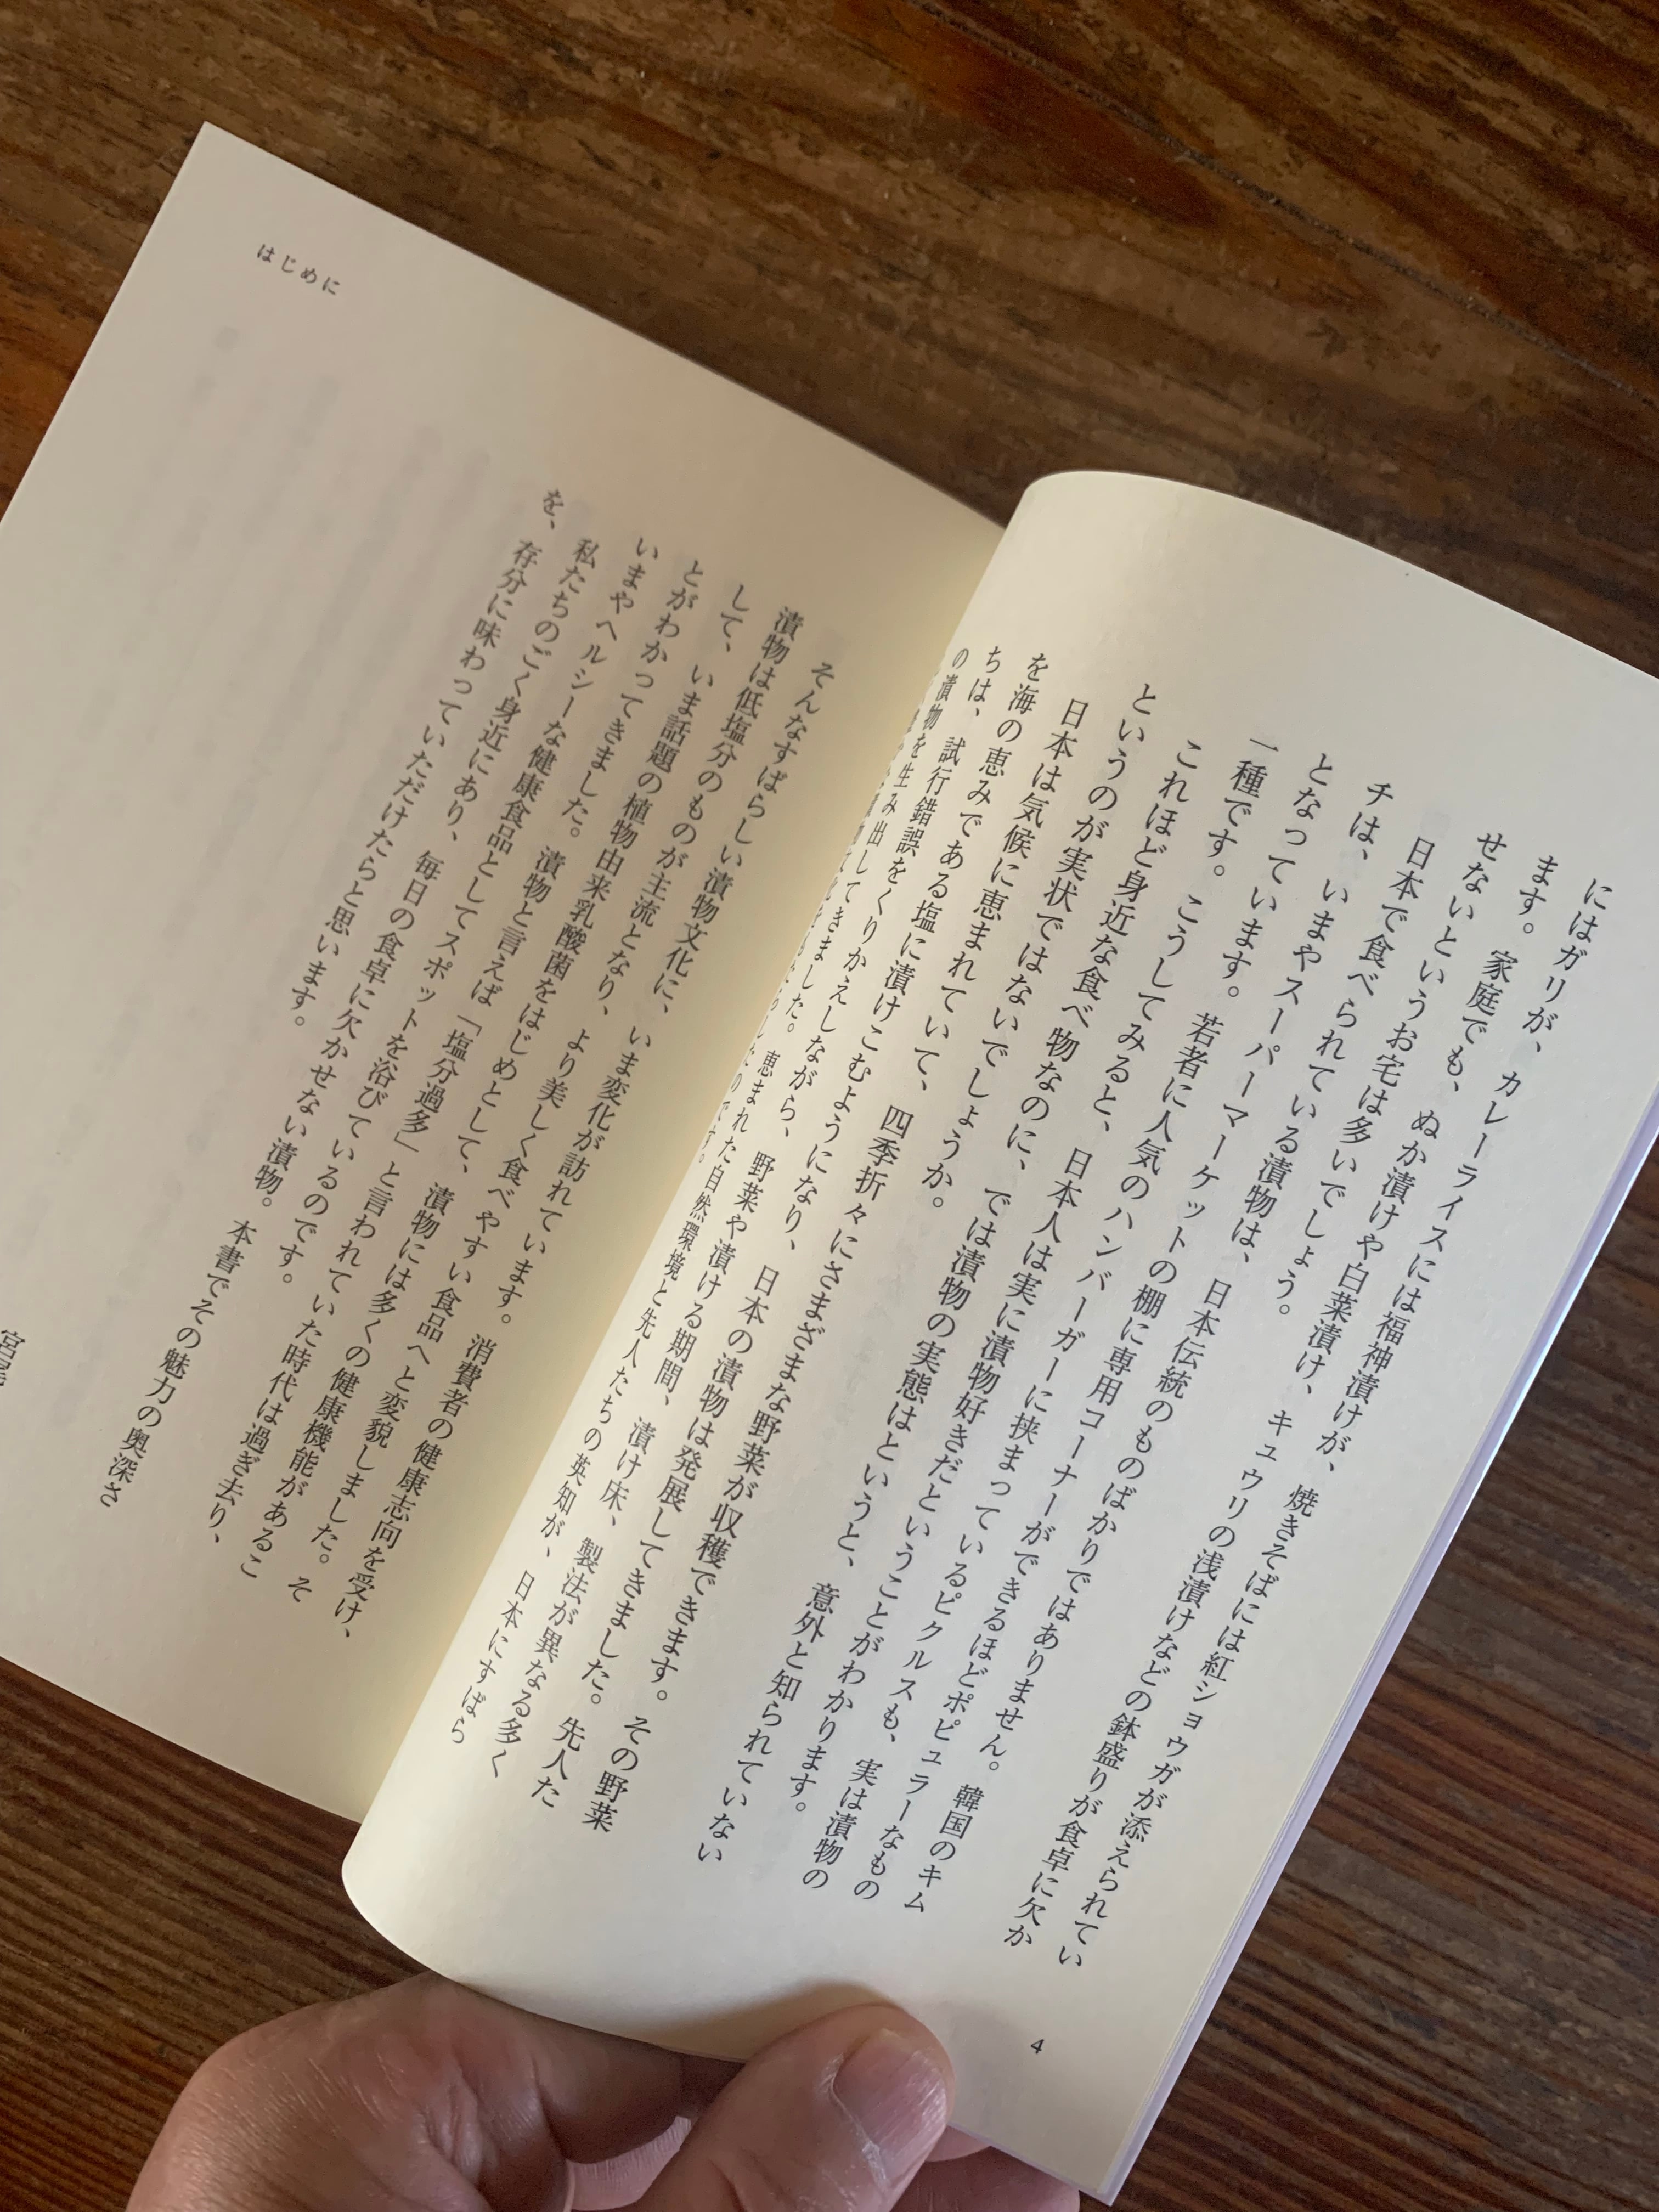 にはガリが、カレーライスには福神漬けが、焼きそばには紅ショウガが添えられてい
ます。家庭でも、ぬか漬けや白菜漬け、キュウリの浅漬けなどの鉢盛りが食卓に欠か
せないというお宅は多いでしょう。
日本で食べられている漬物は、日本伝統のものばかりではありません。韓国のキム
チは、いまやスーパーマーケットの棚に専用コーナーができるほどポピュラーなもの
となっています。若者に人気のハンバーガーに挟まっているピクルスも、実は漬物の
一種です。こうしてみると、日本人は実に漬物好きだということがわかります。
これほど身近な食べ物なのに、では漬物の実態はというと、意外と知られていない
というのが実状ではないでしょうか。
日本は気候に恵まれていて、四季折々にさまざまな野菜が収穫できます。その野菜
を海の恵みである塩に漬けこむようになり、日本の漬物は発展してきました。先人た
ちは、試行錯誤をくりかえしながら、野菜や漬ける期間、漬け床、製法が異なる多く
の漬物を生み出してきました。恵まれた自然環境と先人たちの英知が、日本にすばら
したのです。
4
そんなすばらしい漬物文化に、いま変化が訪れています。消費者の健康志向を受け、
漬物は低塩分のものが主流となり、より美しく食べやすい食品へと変貌しました。そ
して、いま話題の植物由来乳酸菌をはじめとして、漬物には多くの健康機能があるこ
とがわかってきました。漬物と言えば「塩分過多」と言われていた時代は過ぎ去り、
いまやヘルシーな健康食品としてスポットを浴びているのです。
私たちのごく身近にあり、毎日の食卓に欠かせない漬物。本書でその魅力の奥深さ
を、存分に味わっていただけたらと思います。
はじめに